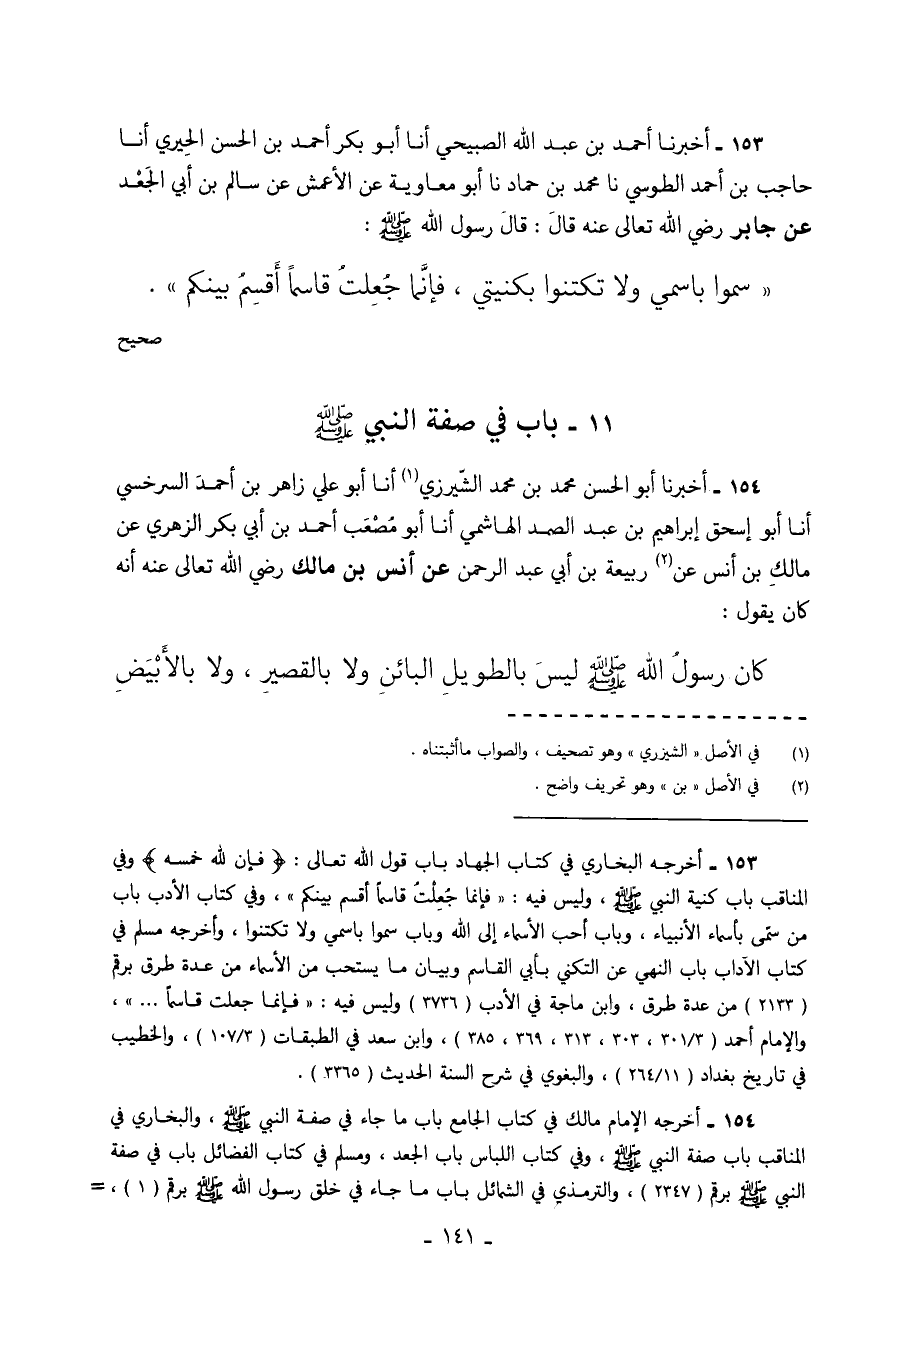 ١٥٣ ـ أخبرنا أحمد بن عبد الله الصبيحي أنا أبو بكر أحمد بن الحسن الحِيري أنا
حاجب بن أحمد الطوسي نا محمد بن حماد نا أبو معاوية عن الأعمش عن سالم بن أبي الجَعْد
عن جابر رضي الله تعالى عنه قالَ : قالَ رسول الله ﷺ :
« سموا باسمي ولا تكتنوا بكنيتي ، فإنَّما جُعِلتُ قاسماً أَقسِمُ بينكم » .
صحيح
١١ ـ باب في صفة النبي ﷺ
١٥٤ ـ أخبرنا أبو الحسن محمد بن محمد الشّيرزي(١) أنا أبو علي زاهر بن أحمدَ السرخسي
أنا أبو إسحق إبراهيم بن عبد الصمد الهاشمي أنا أبو مُصْعَب أحمد بن أبي بكر الزهري عن
مالكِ بن أنس عن(٢) ربيعة بن أبي عبد الرحمن عن أنس بن مالك رضي الله تعالى عنه أنه
كان يقول :
كان رسولُ الله ﷺ ليسَ بالطويلِ البائنِ ولا بالقصيرِ ، ولا بالأَبْيَضِ
(١) في الأصل « الشيزري » وهو تصحيف ، والصواب ماأثبتناه .
(٢) في الأصل « بن » وهو تحريف واضح .
١٥٣ ـ أخرجه البخاري في كتاب الجهاد باب قول الله تعالى : ﴿ فإن لله خمسه ﴾ وفي
المناقب باب كنية النبي ﷺ ، وليس فيه : « فإنما جُعِلْتُ قاسماً أقسم بينكم » ، وفي كتاب الأدب باب
من سمّى بأسماء الأنبياء ، وباب أحب الأسماء إلى الله وباب سموا باسمي ولا تكتنوا ، وأخرجه مسلم في
كتاب الآداب باب النهي عن التكني بأبي القاسم وبيان ما يستحب من الأسماء من عدة طرق برقم
( ٢١٣٣ ) من عدة طرق ، وابن ماجة في الأدب ( ٣٧٣٦ ) وليس فيه : « فإنما جعلت قاسماً ... » ،
والإمام أحمد ( ٣٠١/٣ ، ٣٠٣ ، ٣١٣ ، ٣٦٩ ، ٣٨٥ ) ، وابن سعد في الطبقات ( ١٠٧/٣ ) ، والخطيب
في تاريخ بغداد ( ٢٦٤/١١ ) ، والبغوي في شرح السنة الحديث ( ٣٣٦٥ ) .
١٥٤ ـ أخرجه الإمام مالك في كتاب الجامع باب ما جاء في صفة النبي ﷺ ، والبخاري في
المناقب باب صفة النبي ﷺ ، وفي كتاب اللباس باب الجعد ، ومسلم في كتاب الفضائل باب في صفة
النبي ﷺ برقم ( ٢٣٤٧ ) ، والترمذي في الشمائل باب ما جاء في خلق رسول الله ﷺ برقم ( ١ ) ، =
ـ ١٤١ ـ